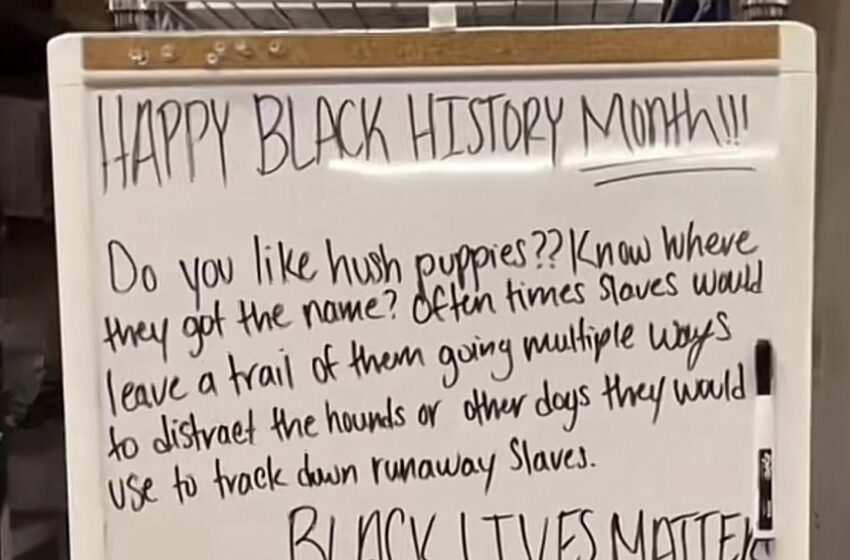 HAPPY BLACK HISTORY Month!!!
Do you like hush puppies?? Know where
they got the name? Often times slaves would
leave a trail of them going multiple ways
to distract the hounds or other dogs they would
use to track down runaway slaves.
BLACK LIVES MATTER